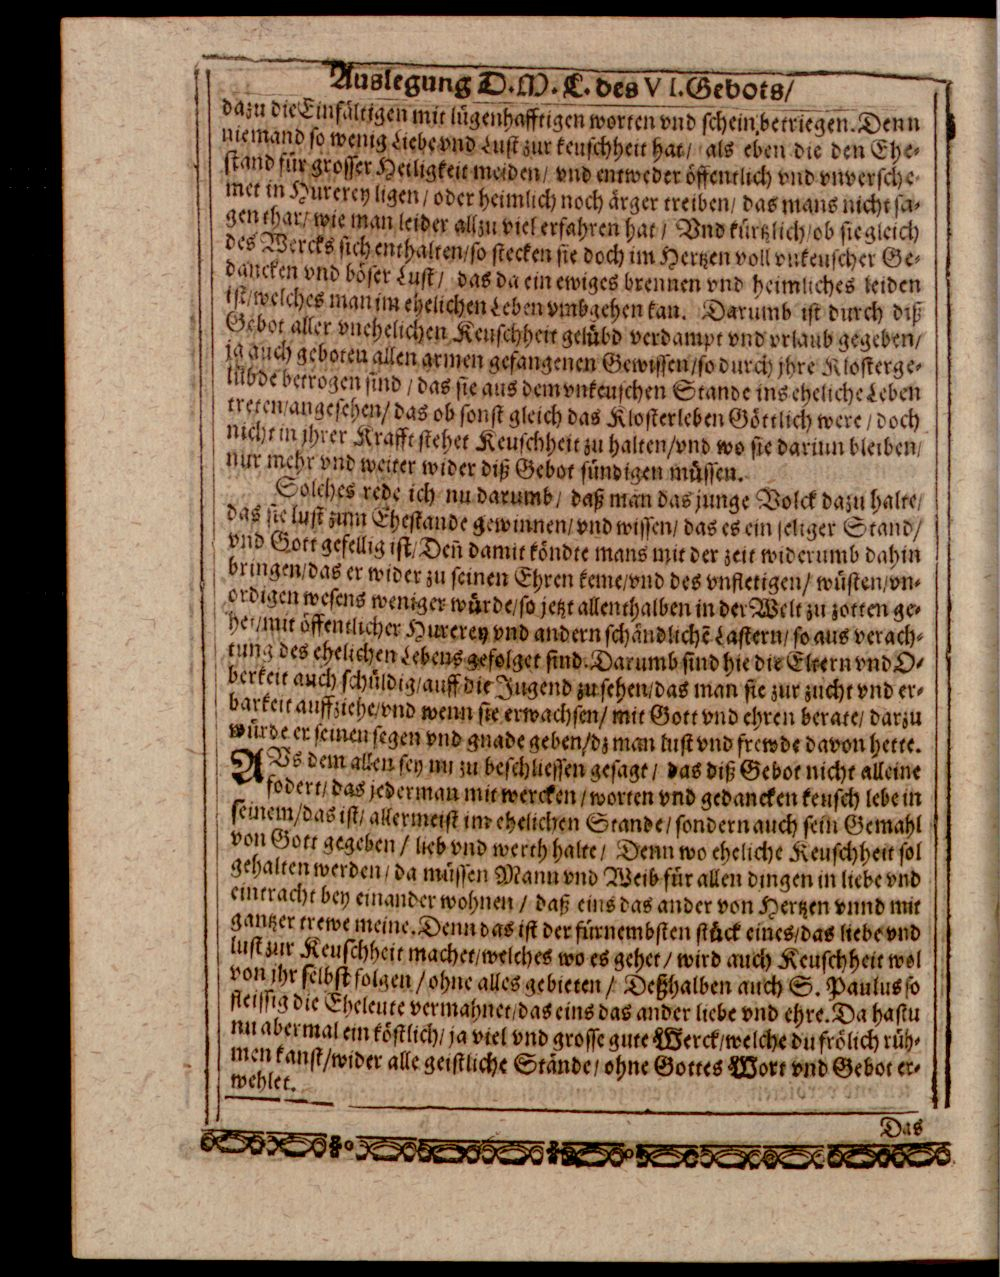 Auslegung D. M. L. des VI. Gebots/
dazu die Einfältigen mit lügenhafftigen worten vnd schein betriegen. Denn
niemand so wenig Liebe vnd Lust zur keuschheit hat/ als eben die den Ehe-
stand für grosser Heiligkeit meiden/ vnd entweder öffentlich vnd vnversche-
met in Hurerey ligen/ oder heimlich noch ärger treiben/ das mans nicht sa-
gen thar/ wie man leider allzu viel erfahren hat/ Vnd kürtzlich/ ob sie gleich
des Wercks sich enthalten/ so stecken sie doch im Hertzen voll vnkeuscher Ge-
dancken vnd böser Lust/ das da ein ewiges brennen vnd heimliches leiden
ist/ welches man im ehelichen Leben vmbgehen kan. Darumb ist durch diß
Gebot aller vnehelichen Keuschheit gelübd verdampt vnd vrlaub gegeben/
ja auch geboten allen armen gefangenen Gewissen/ so durch jhre Klosterge-
lübde betrogen sind/ das sie aus dem vnkeuschen Stande ins eheliche Leben
treten/ angesehen/ das ob sonst gleich das Klosterleben Göttlich were/ doch
nicht in jhrer Krafft stehet Keuschheit zu halten/ vnd wo sie dariun bleiben/
nur mehr vnd weiter wider diß Gebot sündigen müssen.
Solches rede ich nu darumb/ daß man das junge Volck dazu halte/
das sie lust zum Ehestande gewinnen/ vnd wissen/ das es ein seliger Stand/
vnd Gott gefellig ist/ Deñ damit köndte mans mit der zeit widerumb dahin
bringen/ das er wider zu seinen Ehren keme/ vnd des vnfletigen/ wüsten/ vn-
ordigen wesens weniger würde/ so jetzt allenthalben in der Welt zu zotten ge-
het/ mit öffentlicher Hurerey vnd andern schändlichẽ Lastern/ so aus verach-
tung des ehelichen Lebens gefolget sind. Darumb sind hie die Eltern vnd O-
berkeit auch schüldig/ auff die Jugend zu sehen/ das man sie zur zucht vnd er-
barkeit auffziehe/ vnd wenn sie erwachsen/ mit Gott vnd ehren berate/ darzu
würde er seinen segen vnd gnade geben/ dz man lust vnd frewde davon hette.
AVs dem allen sey nu zu beschliessen gesagt/ das diß Gebot nicht alleine
fodert/ das jederman mit wercken/ worten vnd gedancken keusch lebe in
seinem/ das ist/ allermeist im ehelichen Stande/ sondern auch sein Gemahl
von Gott gegeben/ lieb vnd werth halte/ Denn wo eheliche Keuschheit sol
gehalten werden/ da müssen Mann vnd Weib für allen dingen in liebe vnd
eintracht bey einander wohnen/ daß eins das ander von Hertzen vnnd mit
gantzer trewe meine. Denn das ist der fürnembsten stück eines/ das liebe vnd
lust zur Keuschheit machet/ welches wo es gehet/ wird auch Keuschheit wol
von jhr selbst folgen/ ohne alles gebieten/ Deßhalben auch S. Paulus so
fleissig die Eheleute vermahnet/ das eins das ander liebe vnd ehre. Da hastu
nu abermal ein köstlich/ ja viel vnd grosse gute Werck/ welche du frölich rüh-
men kanst/ wider alle geistliche Stände/ ohne Gottes Wort vnd Gebot er-
wehlet.
Das